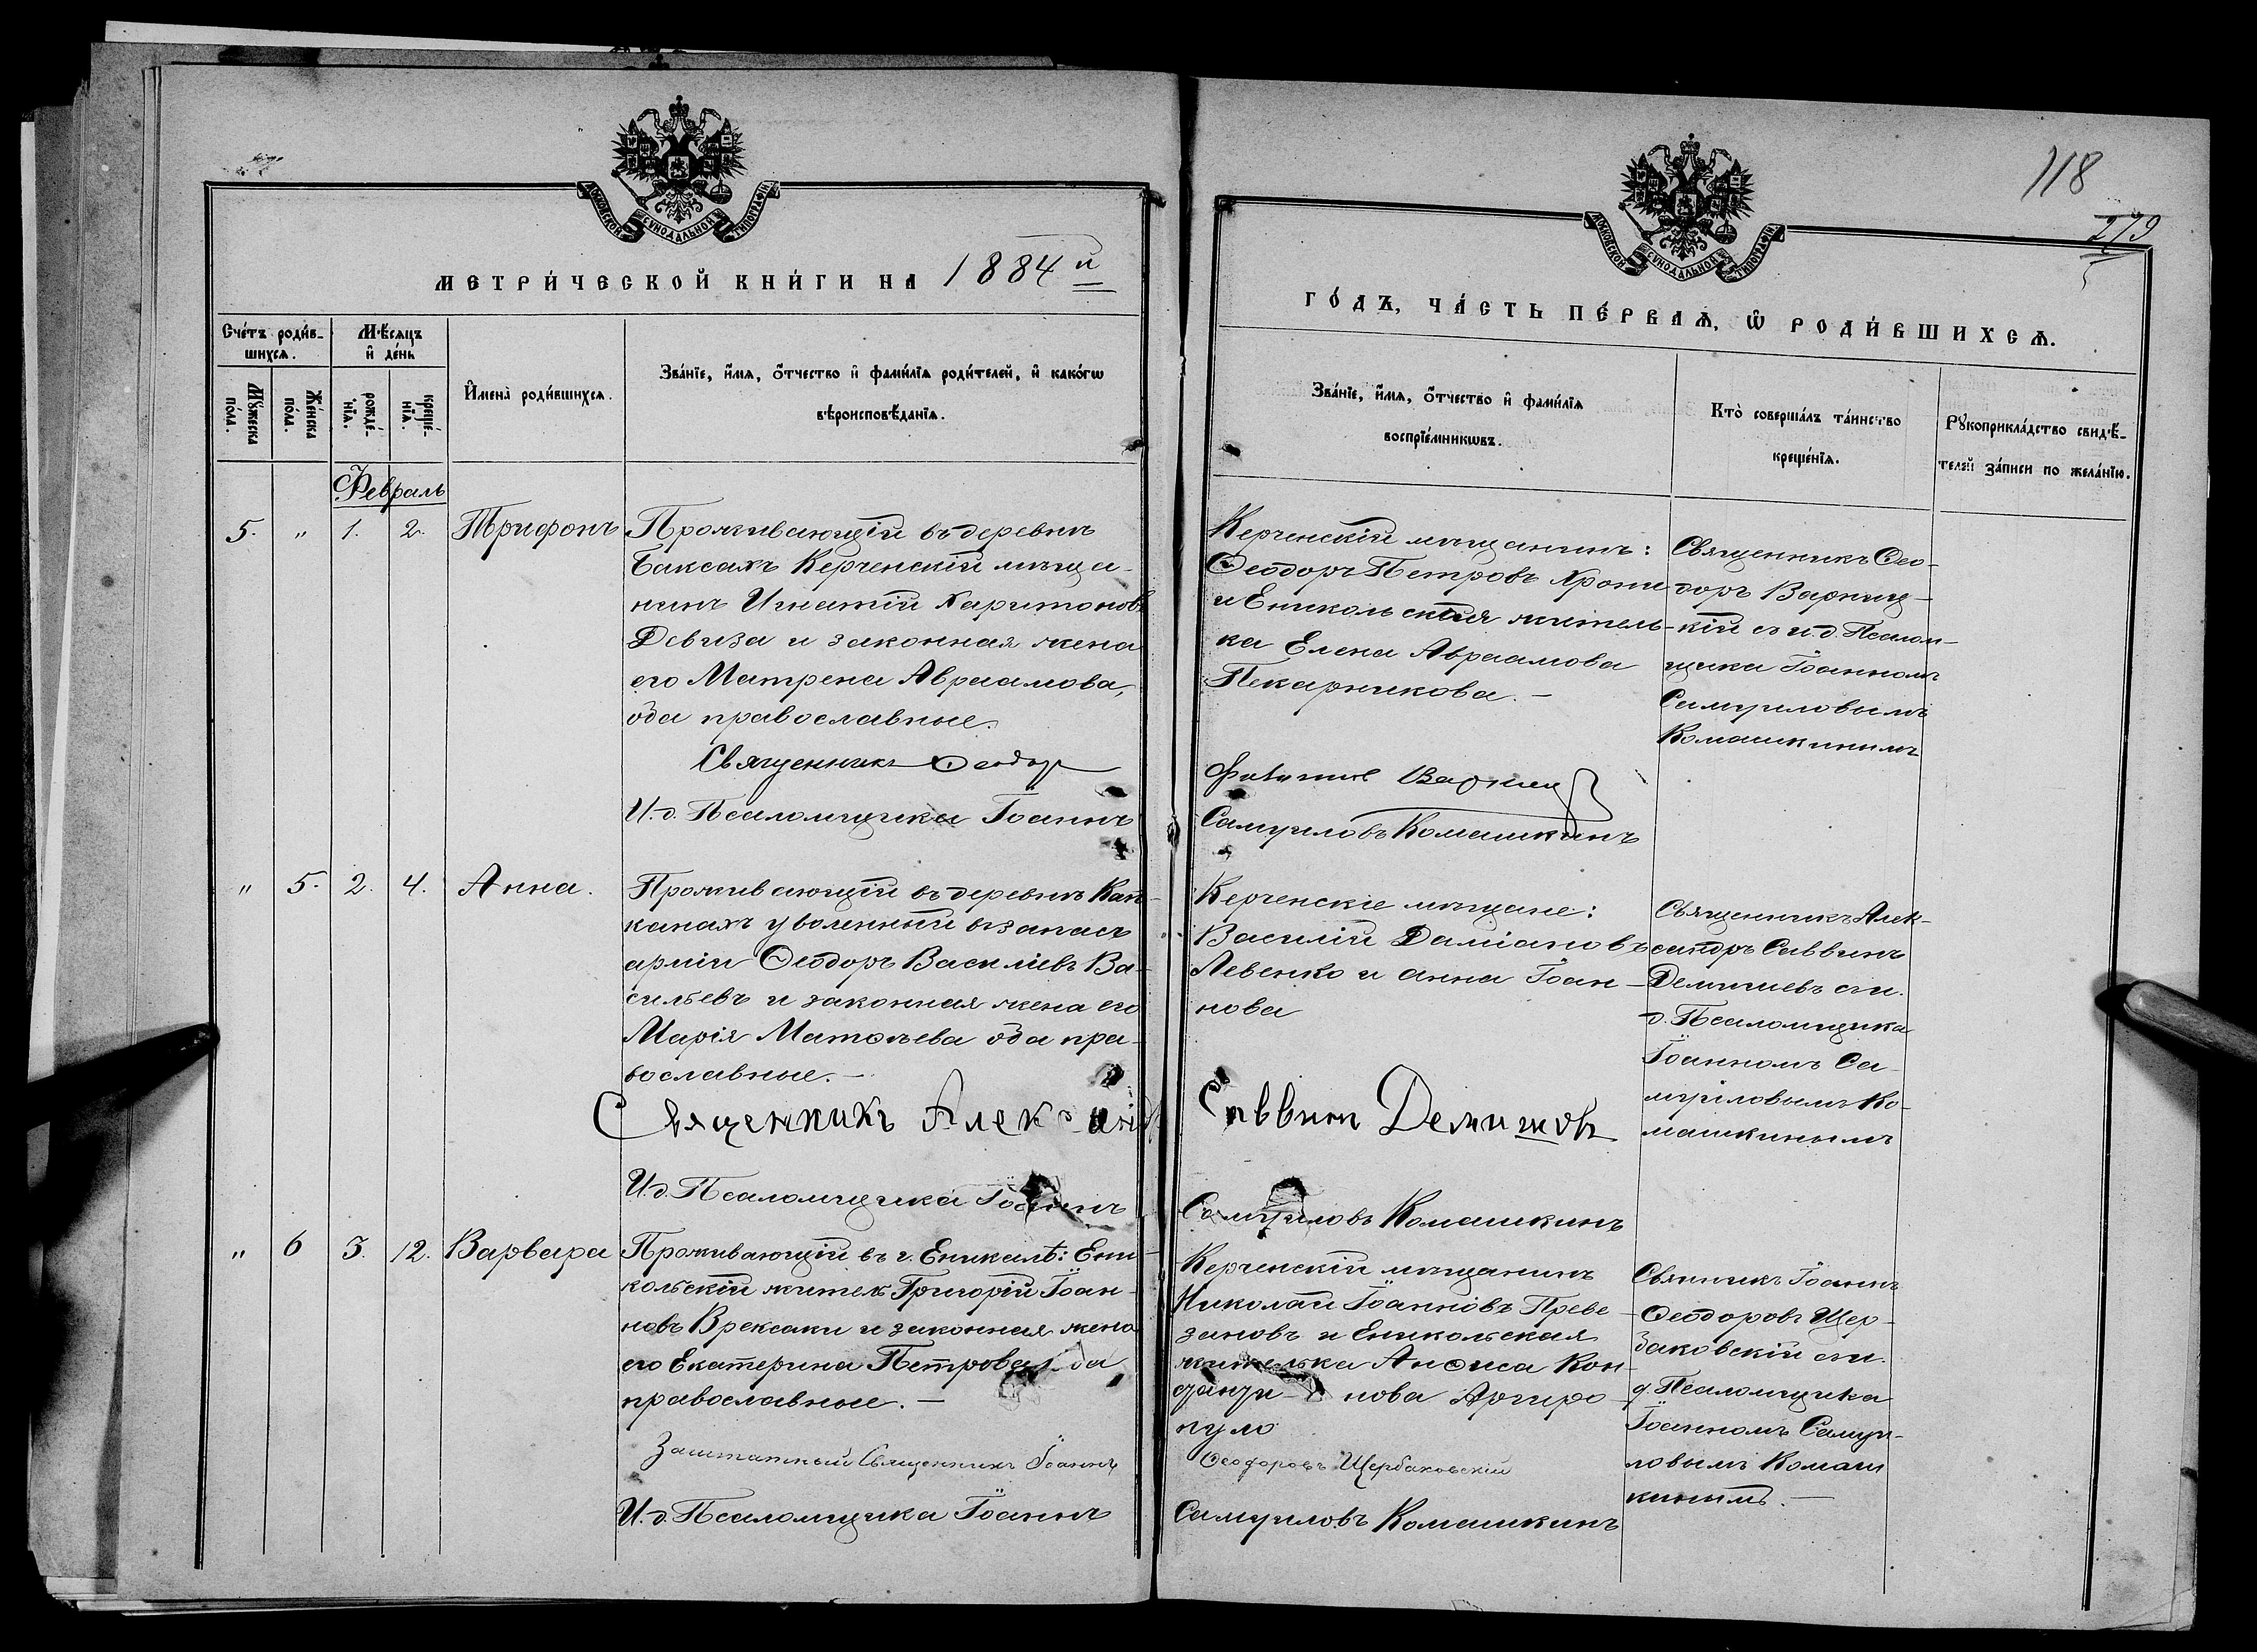 118
279
МОСКОВСКОЙ СѴНОДАЛЬНОЙ ТИПОГРАФІИ
МЕТРИ́ЧЕСКОЙ КНИ́ГИ НА 1884й
Сче́тъ роди́в-
шихсѧ.
Мѣ́сяцъ
и҆ де́нь
Мꙋ́жеска по́ла.
Же́нска по́ла.
рожде́-
нїѧ.
креще́-
нїѧ.
И҆мена̀ роди́вшихсѧ.
Зва́нїе, и҆́мѧ, ѻ҆́тчество и҆ фами́лїѧ роди́телей, и҆ како́гѡ
вѣроисповѣ́данїѧ.
Февраль
5. " 1. 2. Трифонъ
Проживающій въ деревнѣ
Баксахъ Керченскій мѣща-
нинъ Игнатій Харитоновъ
Девиза и законная жена
его Матрена Авраамова,
оба православные.
Священникъ Ѳеодор
И. д. Псаломщика Іоаннъ
" 5. 2. 4. Анна.
Проживающій въ деревнѣ Кап-
канахъ уволенный въ запасъ
арміи Ѳеодоръ Василіевъ Ва-
сильевъ и законная жена его
Марія Матѳѣева оба пра-
вославные.—
Священникъ Александ
И. д. Псаломщика Іоаннъ
" 6 3. 12. Варвара
Проживающій въ г. Еникалѣ: Ени-
кольскій житель Григорій Іоан-
новъ Врексаки и законная жена
его Екатерина Петрова оба
православные.—
Заштатный Священникъ Іоаннъ
И. д. Псаломщика Іоаннъ
МОСКОВСКОЙ СѴНОДАЛЬНОЙ ТИПОГРАФІИ
ГО́ДЪ, ЧА́СТЬ ПЕ́РВАѦ, Ѡ҆ РОДИ́ВШИХСѦ.
Зва́нїе, и҆́мѧ, ѻ҆́тчество и҆ фами́лїѧ
воспрїе́мникѡвъ.
Кто̀ соверша́лъ та́инство
креще́нїѧ.
Рꙋкоприкла́дство свидѣ́-
телей за́писи по жела́нїю.
Керченскій мѣщанинъ:
Ѳеодоръ Петровъ Хрони
и Еникольская житель-
ка Елена Авраамова
Пекарникова.—
Варниц
Самуиловъ Комашкинъ
Священникъ Ѳео-
доръ Варниц-
кій съ и. д. Псалом-
щика Іоанномъ
Самуиловымъ
Комашкинымъ
Керченскіе мѣщане:
Василій Даміановъ
Левенко и Анна Іоан-
нова
Саввинъ Демишевъ
Самуиловъ Комашкинъ
Священникъ Алек-
сандръ Саввинъ
Демишевъ съ и.
д. Псаломщика
Іоанномъ Са-
муиловымъ Ко-
машкинымъ
Керченскій мѣщанинъ
Николай Іоанновъ Преве-
зановъ и Еникольская
жителька Анѳиса Кон-
нова Аргиро-
пуло
Ѳеодоровъ Щербаковскій
Самуиловъ Комашкинъ
Свяникъ Іоаннъ
Ѳеодоровъ Щер-
баковскій съ и.
д. Псаломщика
Іоанномъ Самуи-
ловымъ Комаш
кинымъ.—